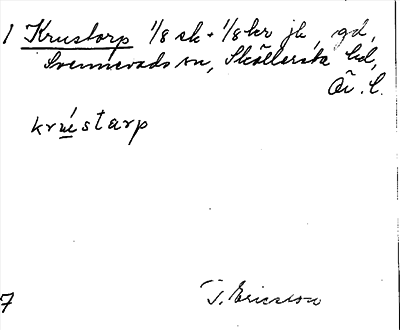 1 Krustorp 1/8 sk + 1/8 kr jk, gd,
Svennevads sn, Sköllersta hd,
Ör. l.
krústarp
7
J. Ericsson